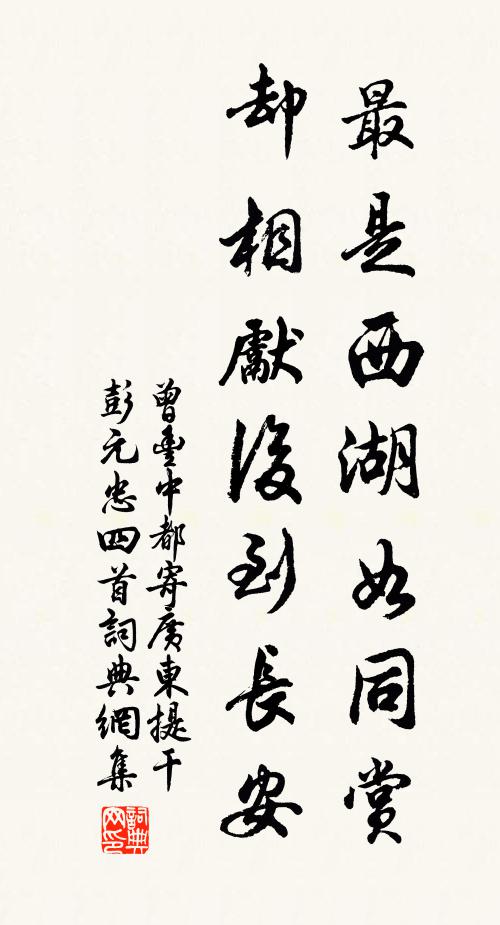 最是西湖如同賞
却相獻後到長安
曾豐中都寄廣東提干
彭元忠四首詞典網集
詞典
网印